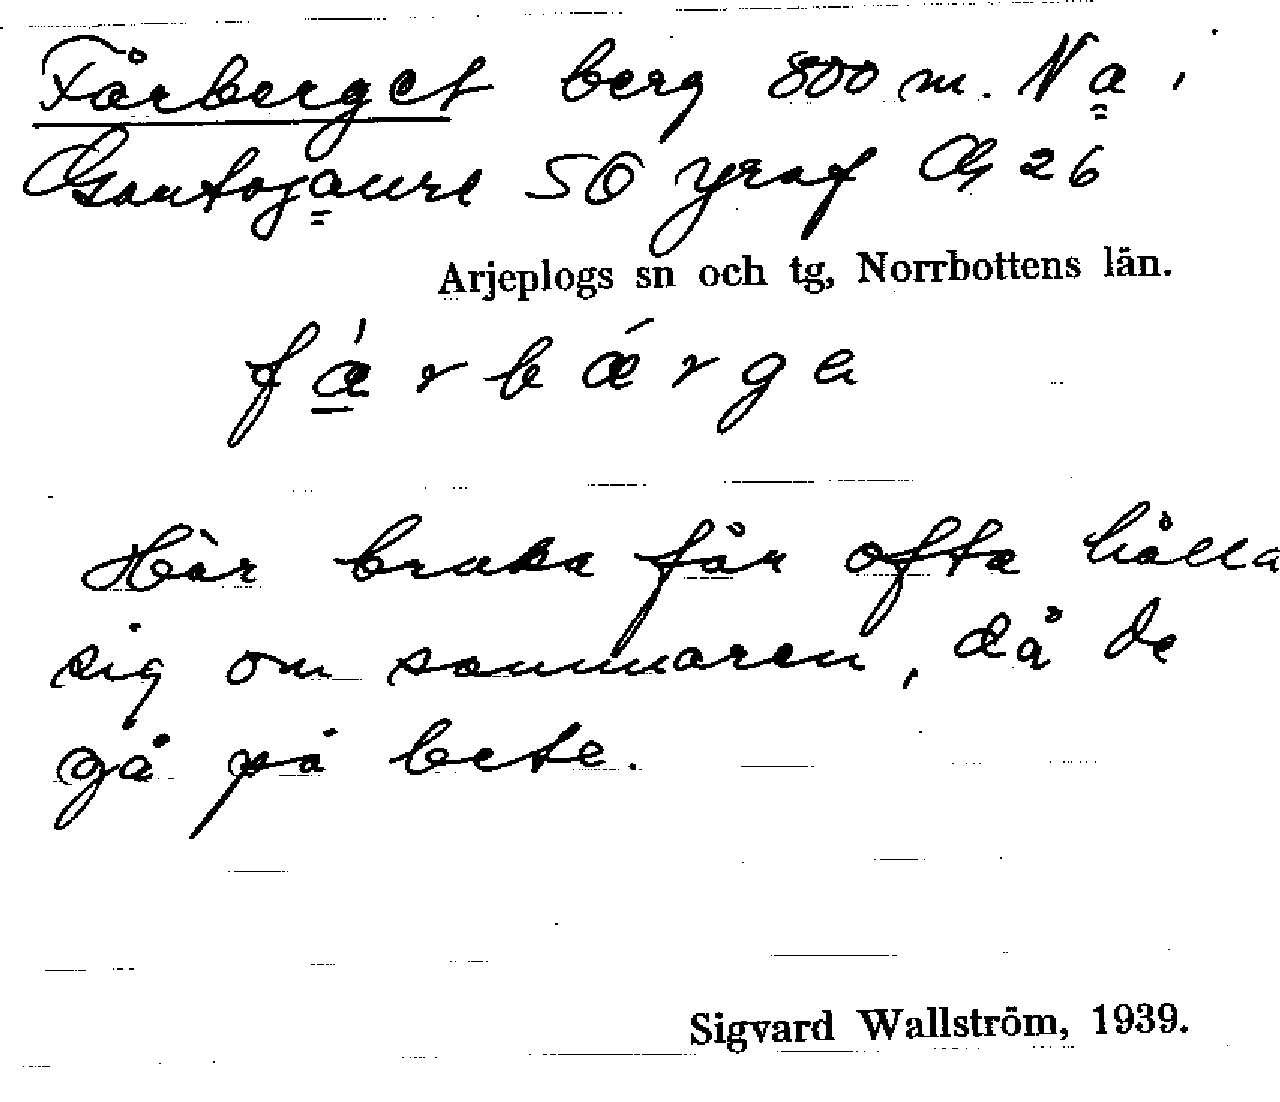 Fårberget berg 800 m. N a
SO Gb 26
Arjeplogs sn och tg, Norrbottens län.
fǽrbǽrge
Här bruka får ofta hålla
sig om sommaren, då de
gå på bete.
Sigvard Wallström, 1939.